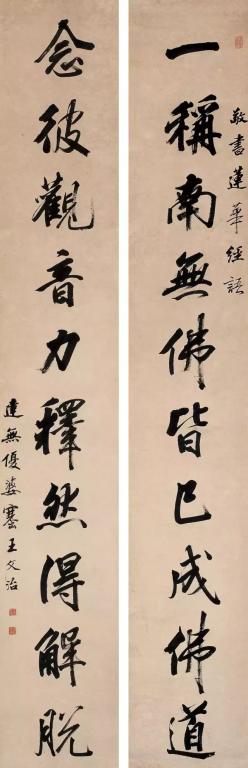 一稱南無佛皆已成佛道
敬書蓮華經語
念彼觀音力釋然得解脫
達無優婆塞王文治